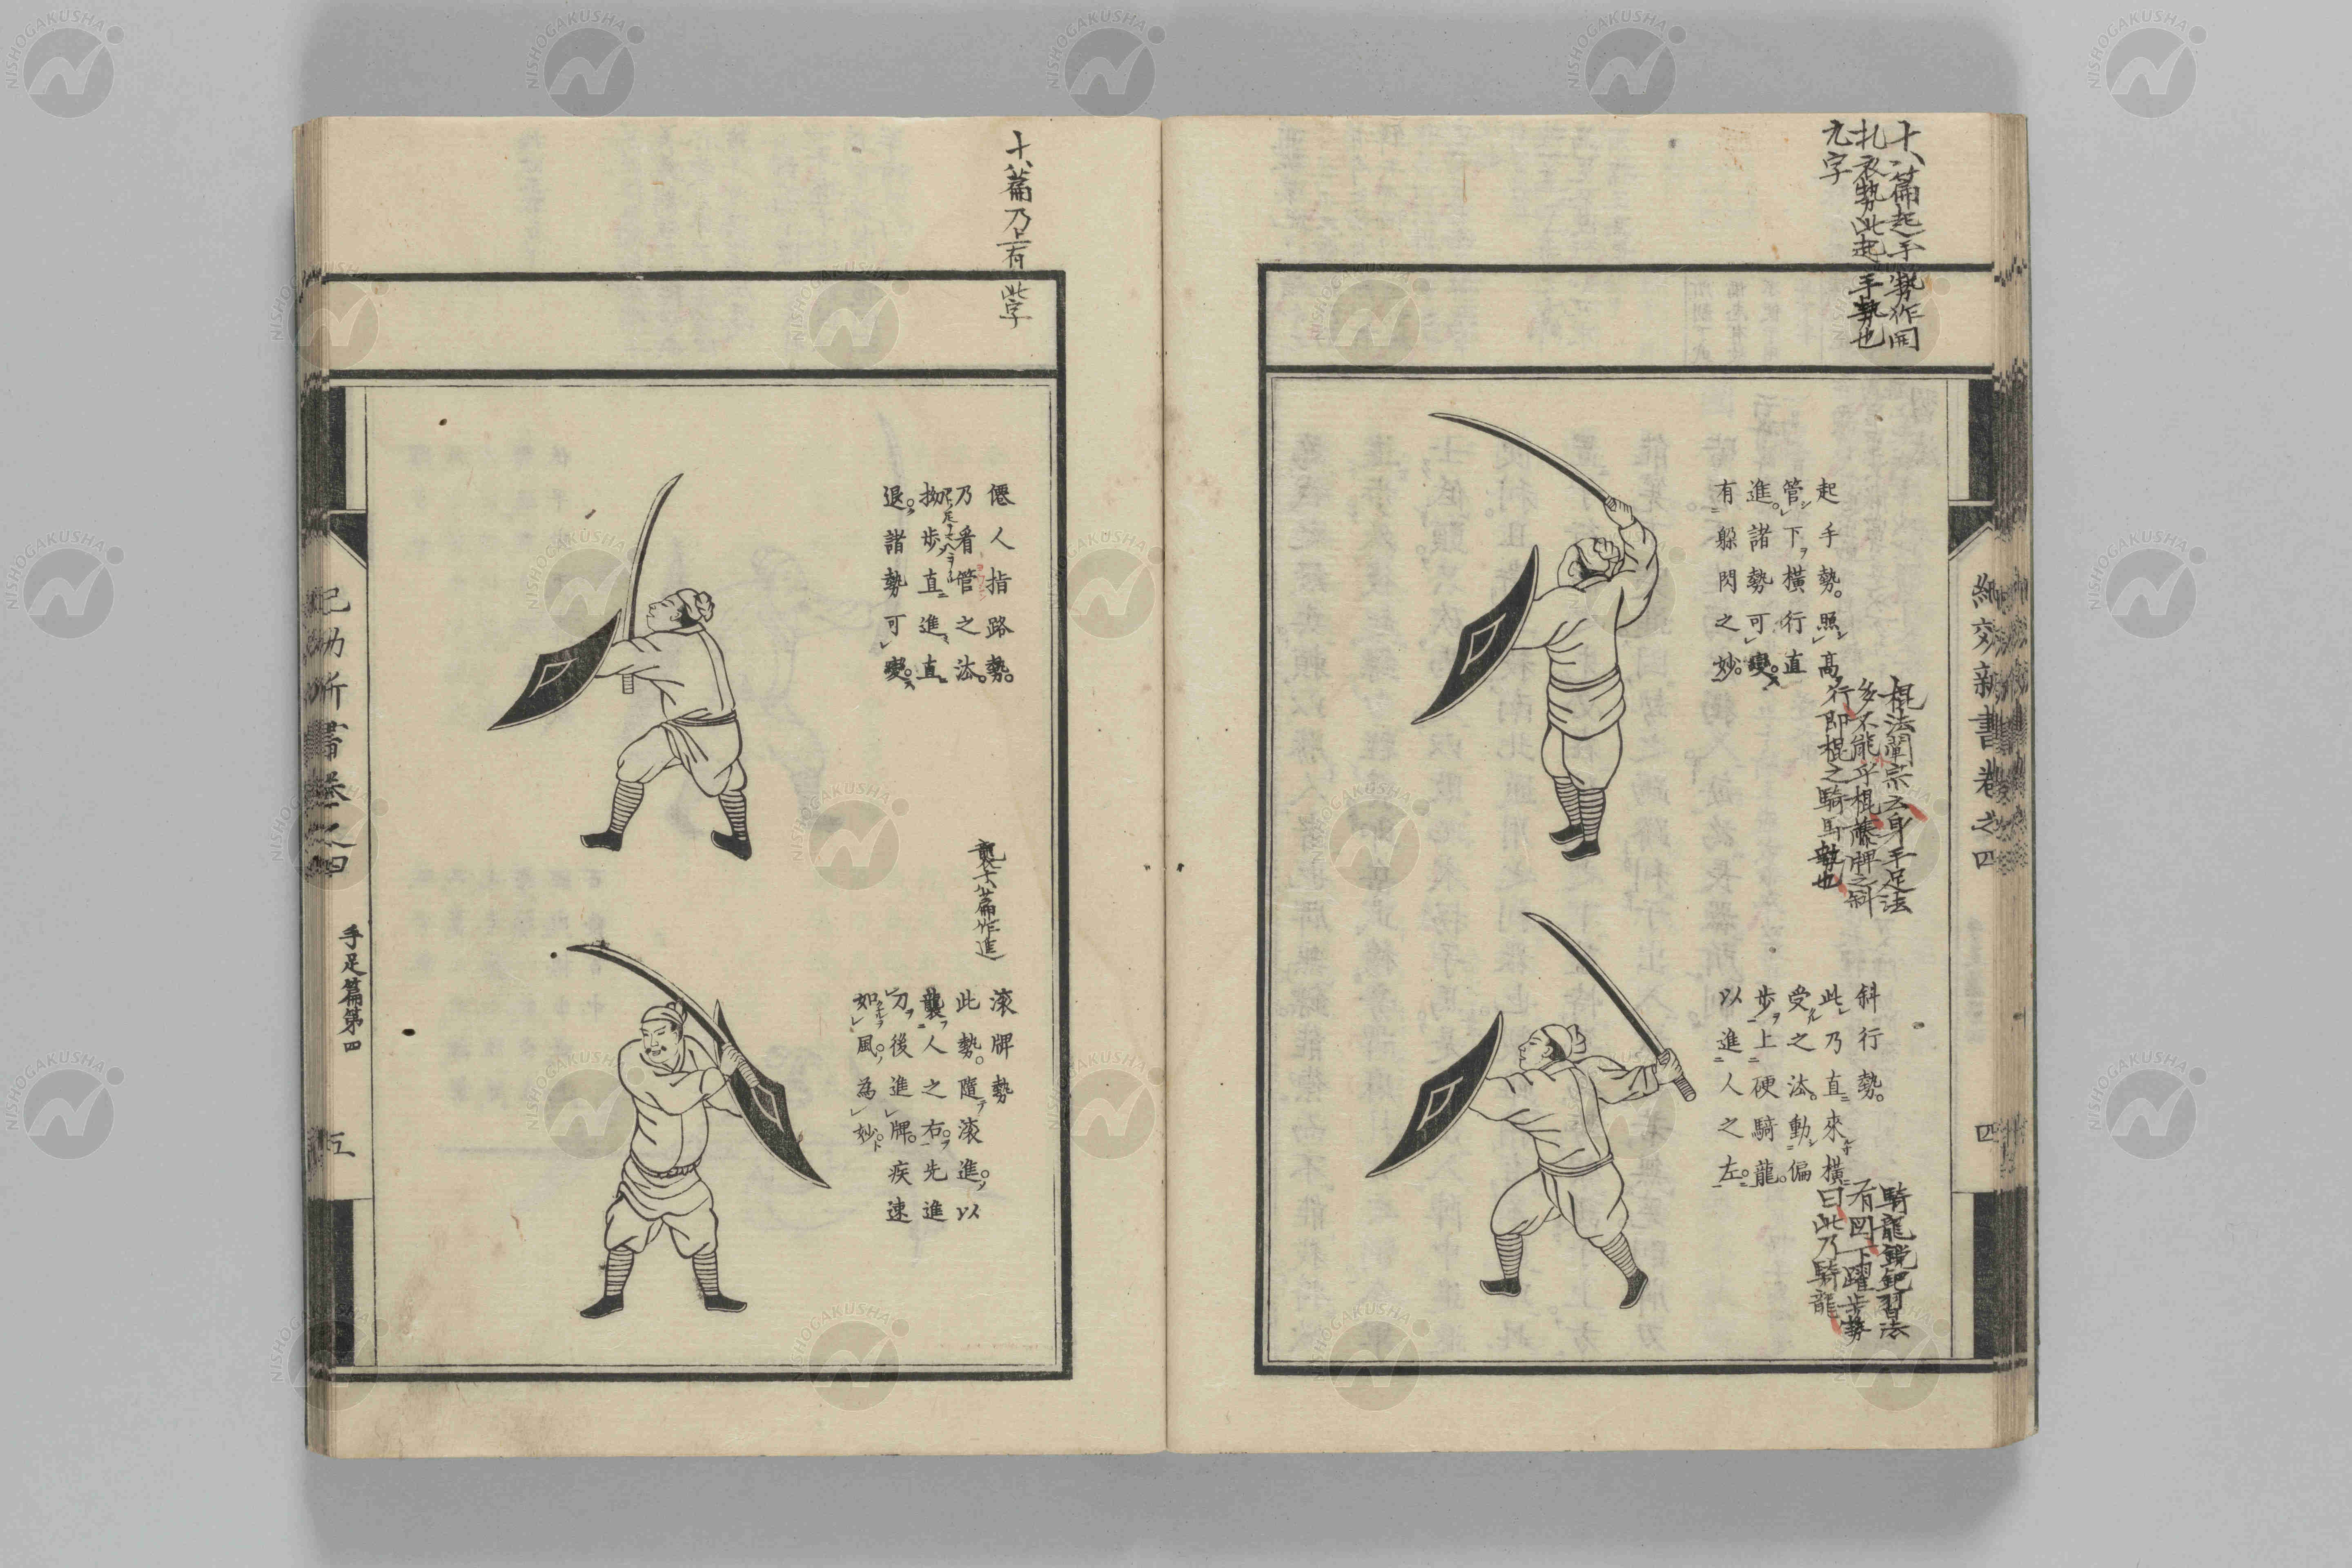 十八篇起手勢作開
扎衣勢此起手勢也
九字
紀效新書卷之四
四
起手勢。照高
管下橫行直
進。諸勢可變。
有躲閃之妙。
棍法闡宗云身手足法
多不能乎棍藤牌之斜
行即棍之騎馬勢也
斜行勢。
此乃直來橫
受之法。動偏
步上硬騎龍。
以進人之左。
騎龍鋭鈀習法
有凹下躍步勢
曰此乃騎龍
十八篇乃上有此字
僊人指路勢。
乃看管之法。
拗步直進直
退。諸勢可變。
襲十八篇作進
滚牌勢
此勢。隨滚進。以
襲人之右。先進
刀後進牌。疾速
如風。為妙。
紀効新書卷之四
手足篇第四
五
NISHOGAKUSHA